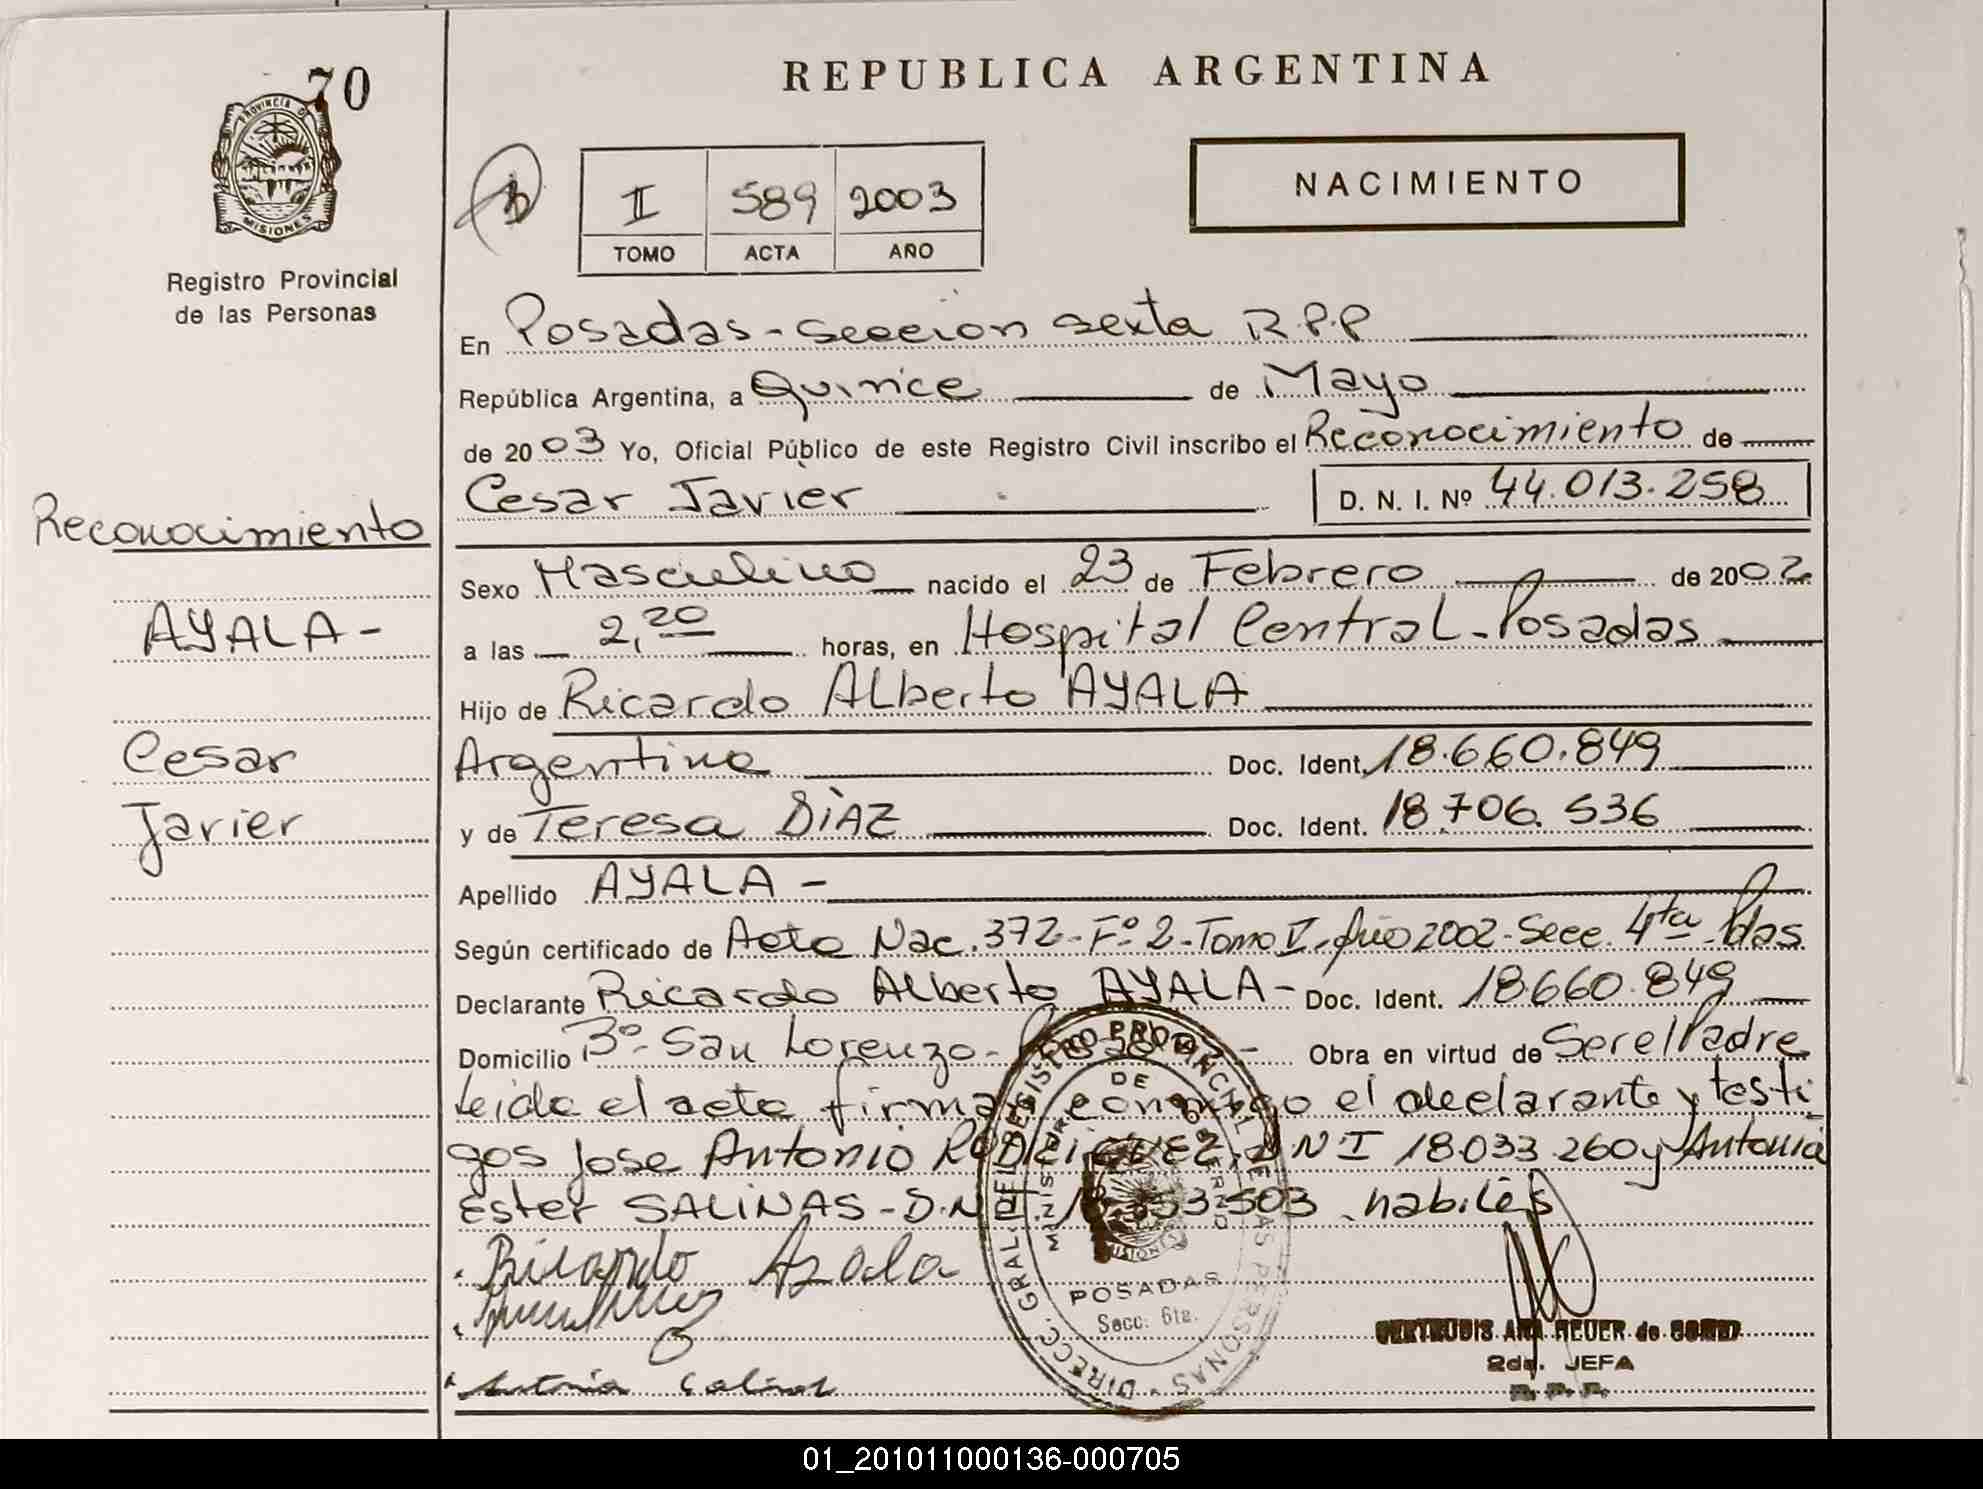 70
PROVINCIA DE
MISIONES
Registro Provincial
de las Personas
REPUBLICA ARGENTINA
II 589 2003
TOMO ACTA AÑO
NACIMIENTO
En Posadas - seccion sexta R.P.P
República Argentina, a Quince de Mayo
de 2003 Yo, Oficial Público de este Registro Civil inscribo el Reconocimiento de
Cesar Javier D. N. I. Nº 44.013.258
Reconocimiento
AYALA -
Cesar
Javier
Sexo Masculino nacido el 23 de Febrero de 2002
a las 2,20 horas, en Hospital Central - Posadas
Hijo de Ricardo Alberto AYALA
Argentino Doc. Ident. 18.660.849
y de Teresa DÌAZ Doc. Ident. 18.706.536
Apellido AYALA -
Según certificado de Acta Nac. 372 - Fº 2 - Tomo I - Año 2002 - Secc. 4ta Pdas
Declarante Ricardo Alberto AYALA - Doc. Ident. 18660.849
Domicilio Bº - San Lorenzo - Obra en virtud de Ser el Padre
Leida el acta firman conmigo el declarante y testi
gos Jose Antonio RODRIGUEZ, DNI 18.033.260 y Antonia
Ester SALINAS - D.N.I 353503 habiles
Ricardo Ayala
Antonia Salinas
DIRECC. GRAL. DEL REGISTRO PROVINCIAL DE LAS PERSONAS
MINISTERIO DE GOBIERNO
MISIONES
POSADAS
Secc. 6ta.
GERTRUDIS ANA REUER de GOMEZ
2da. JEFA
R. P. P.
01_201011000136-000705